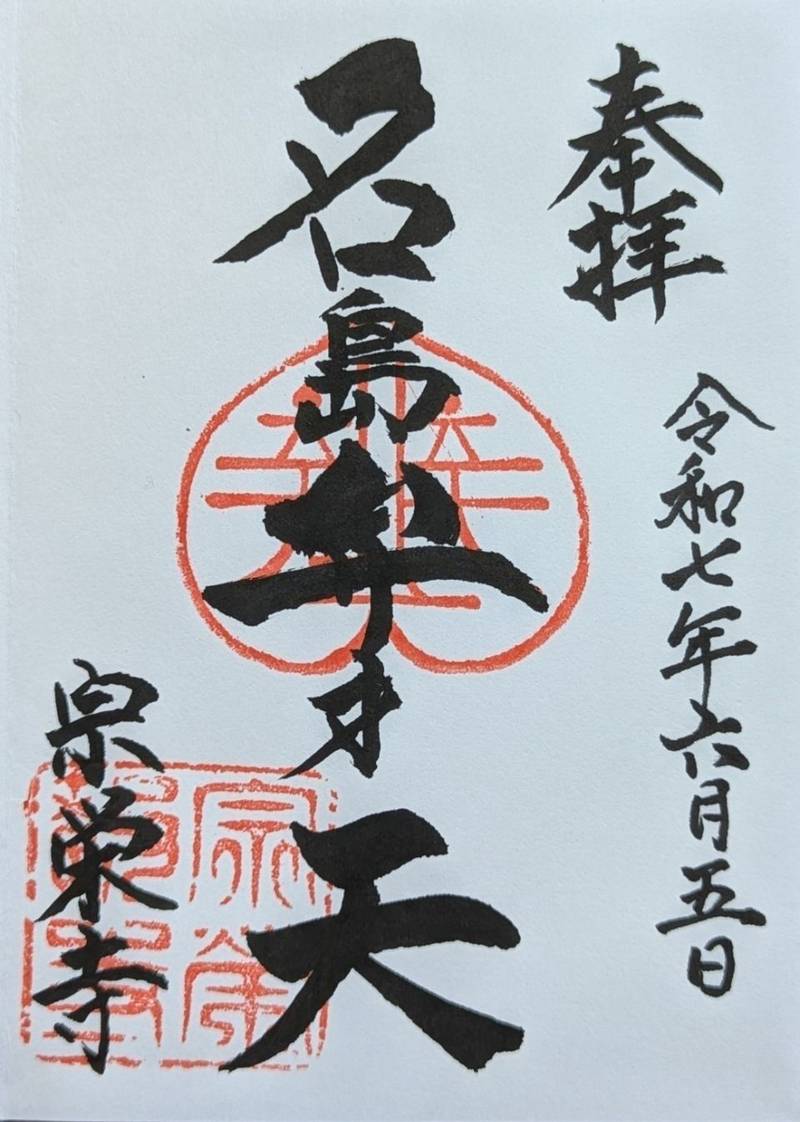 奉拝
令和七年六月五日
名島弁才天
宗栄寺
宗栄